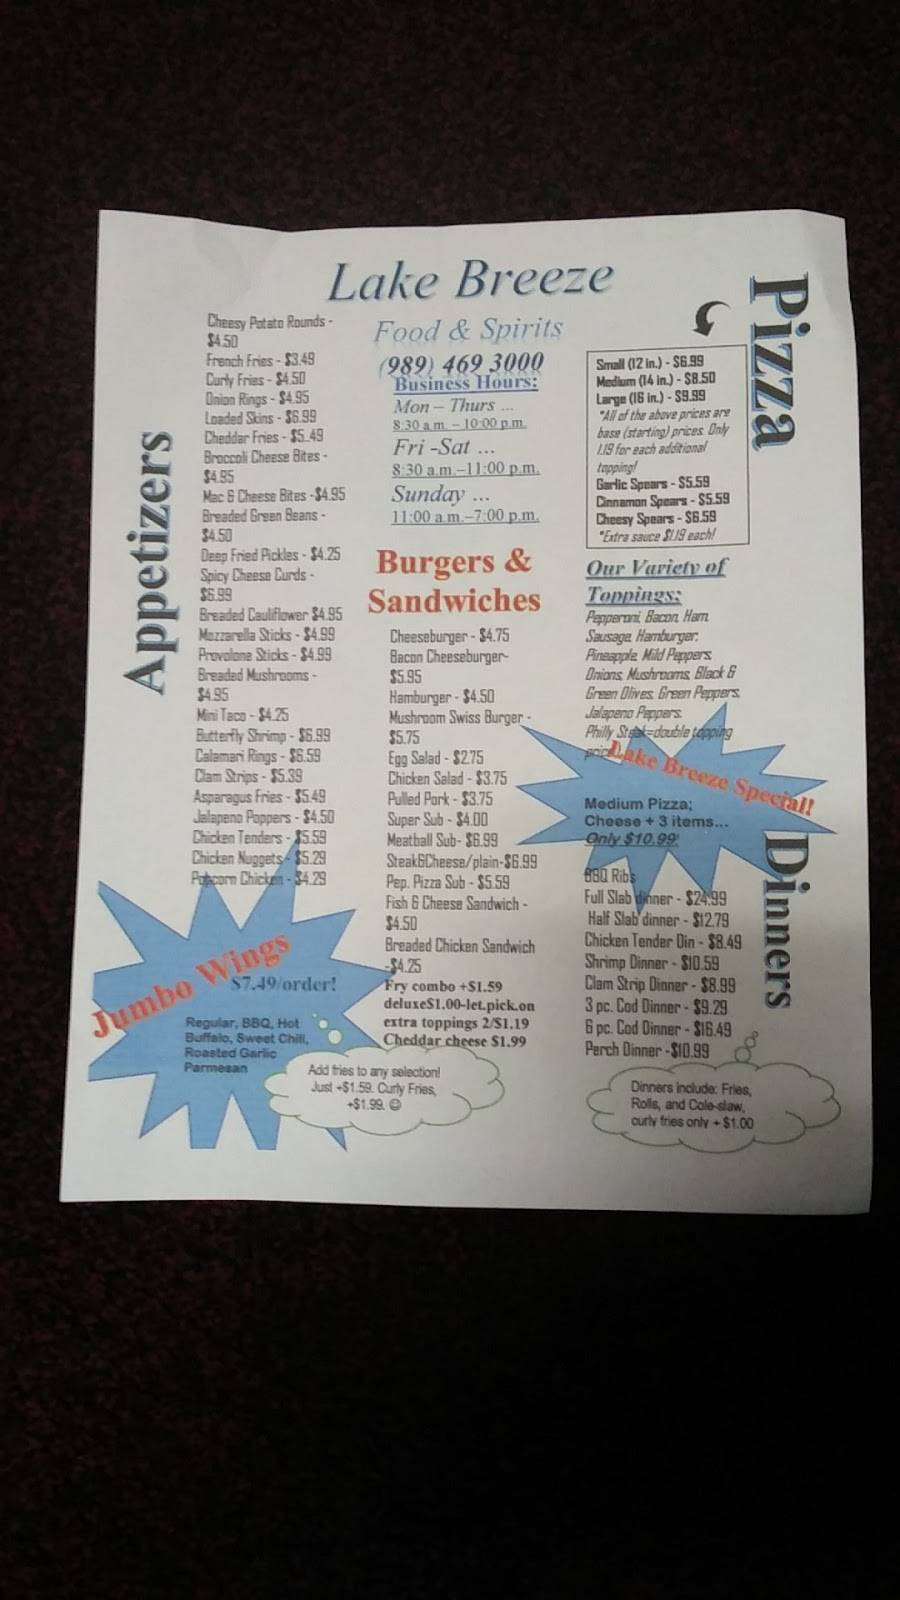 Lake Breeze
Food & Spirits
(989) 469 3000
Business Hours:
Mon – Thurs ...
8:30 a.m. – 10:00 p.m.
Fri -Sat ...
8:30 a.m.–11:00 p.m.
Sunday ...
11:00 a.m.–7:00 p.m.
Appetizers
Cheesy Potato Rounds -
$4.50
French Fries - $3.49
Curly Fries - $4.50
Onion Rings - $4.95
Loaded Skins - $6.99
Cheddar Fries - $5.49
Broccoli Cheese Bites -
$4.95
Mac & Cheese Bites -$4.95
Breaded Green Beans -
$4.50
Deep Fried Pickles - $4.25
Spicy Cheese Curds -
$6.99
Breaded Cauliflower $4.95
Mozzarella Sticks - $4.99
Provolone Sticks - $4.99
Breaded Mushrooms -
$4.95
Mini Taco - $4.25
Butterfly Shrimp - $6.99
Calamari Rings - $6.59
Clam Strips - $5.39
Asparagus Fries - $5.49
Jalapeno Poppers - $4.50
Chicken Tenders - $5.59
Chicken Nuggets - $5.29
Popcorn Chicken - $4.29
Jumbo Wings
$7.49/order!
Regular, BBQ, Hot
Buffalo, Sweet Chili,
Roasted Garlic
Parmesan
Burgers &
Sandwiches
Cheeseburger - $4.75
Bacon Cheeseburger-
$5.95
Hamburger - $4.50
Mushroom Swiss Burger -
$5.75
Egg Salad - $2.75
Chicken Salad - $3.75
Pulled Pork - $3.75
Super Sub - $4.00
Meatball Sub- $6.99
Steak&Cheese/plain-$6.99
Pep. Pizza Sub - $5.59
Fish & Cheese Sandwich -
$4.50
Breaded Chicken Sandwich
-$4.25
Fry combo +$1.59
deluxe$1.00-let,pick,on
extra toppings 2/$1.19
Cheddar cheese $1.99
Add fries to any selection!
Just +$1.59. Curly Fries,
+$1.99. ☺
Pizza
Small (12 in.) - $6.99
Medium (14 in.) - $8.50
Large (16 in.) - $9.99
*All of the above prices are
base (starting) prices. Only
1.19 for each additional
topping!
Garlic Spears - $5.59
Cinnamon Spears - $5.59
Cheesy Spears - $6.59
*Extra sauce $1.19 each!
Our Variety of
Toppings:
Pepperoni, Bacon, Ham,
Sausage, Hamburger,
Pineapple, Mild Peppers,
Onions, Mushrooms, Black &
Green Olives, Green Peppers,
Jalapeno Peppers.
Philly Steak=double topping
Lake Breeze Special!
Medium Pizza;
Cheese + 3 items...
Only $10.99!
Dinners
BBQ Ribs
Full Slab dinner - $24.99
Half Slab dinner - $12.79
Chicken Tender Din - $8.49
Shrimp Dinner - $10.59
Clam Strip Dinner - $8.99
3 pc. Cod Dinner - $9.29
6 pc. Cod Dinner - $16.49
Perch Dinner -$10.99
Dinners include: Fries,
Rolls, and Cole-slaw,
curly fries only + $1.00